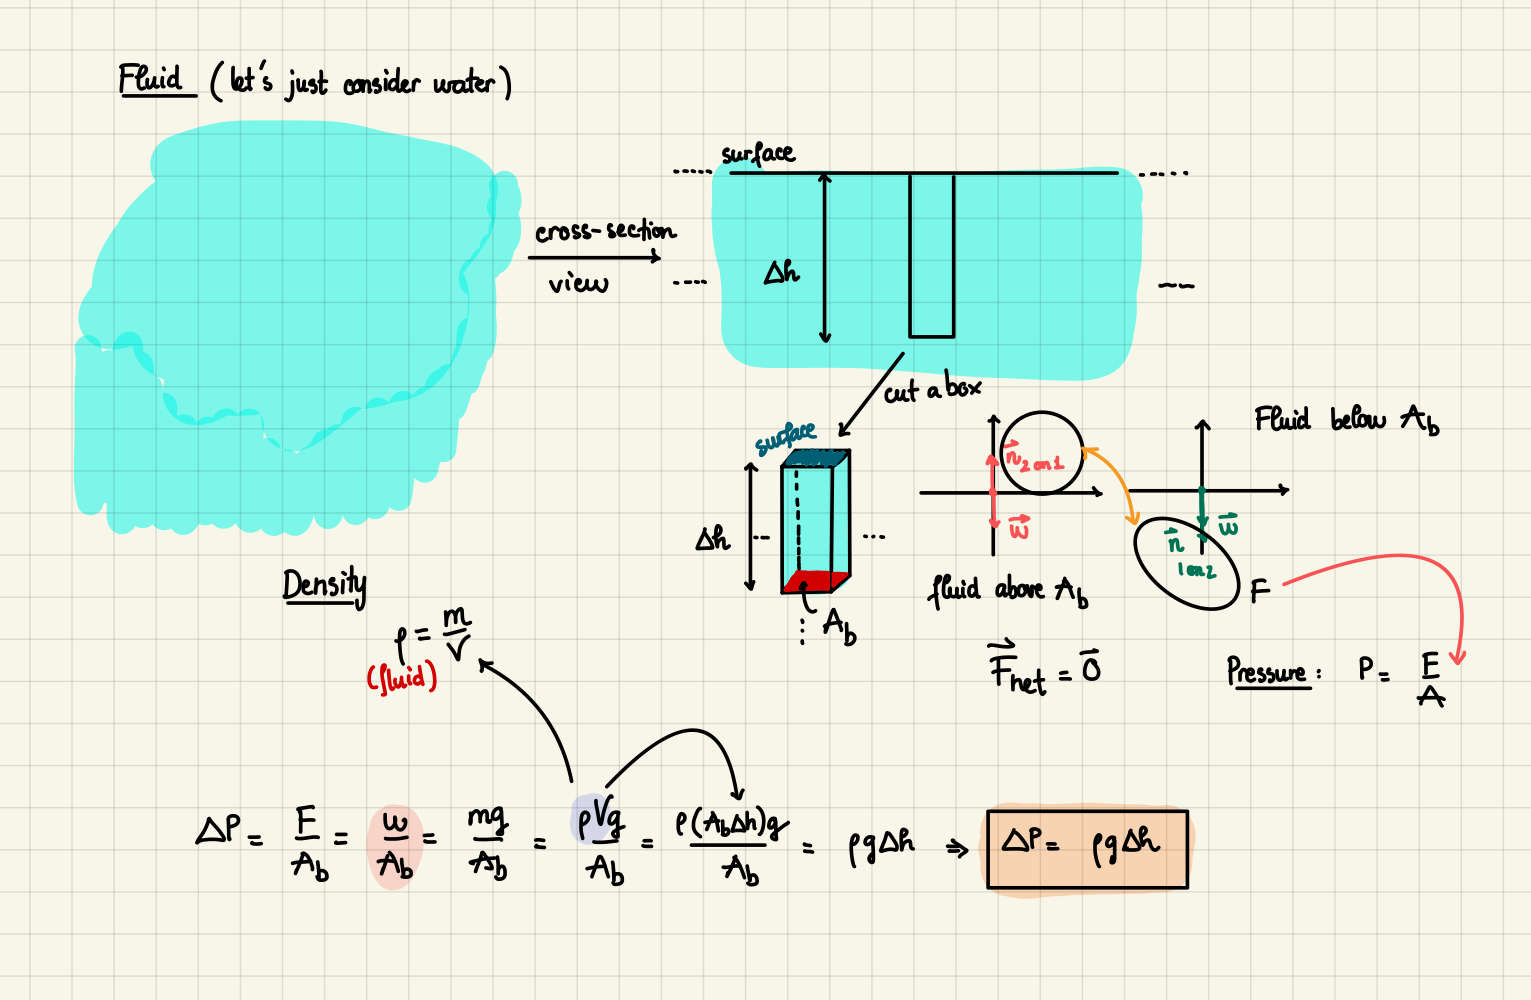 Fluid (let's just consider water)
surface
cross-section
view
Δh
cut a box
surface
Δh
A_b
n⃗ 2 on 1
w⃗
fluid above A_b
F⃗_net = 0⃗
Fluid below A_b
w⃗
n⃗ 1 on 2
F
Pressure: P = F/A
Density
ρ = m/V
(fluid)
ΔP = F/A_b = w/A_b = mg/A_b = ρVg/A_b = ρ(A_bΔh)g/A_b = ρgΔh ⇒ ΔP = ρgΔh